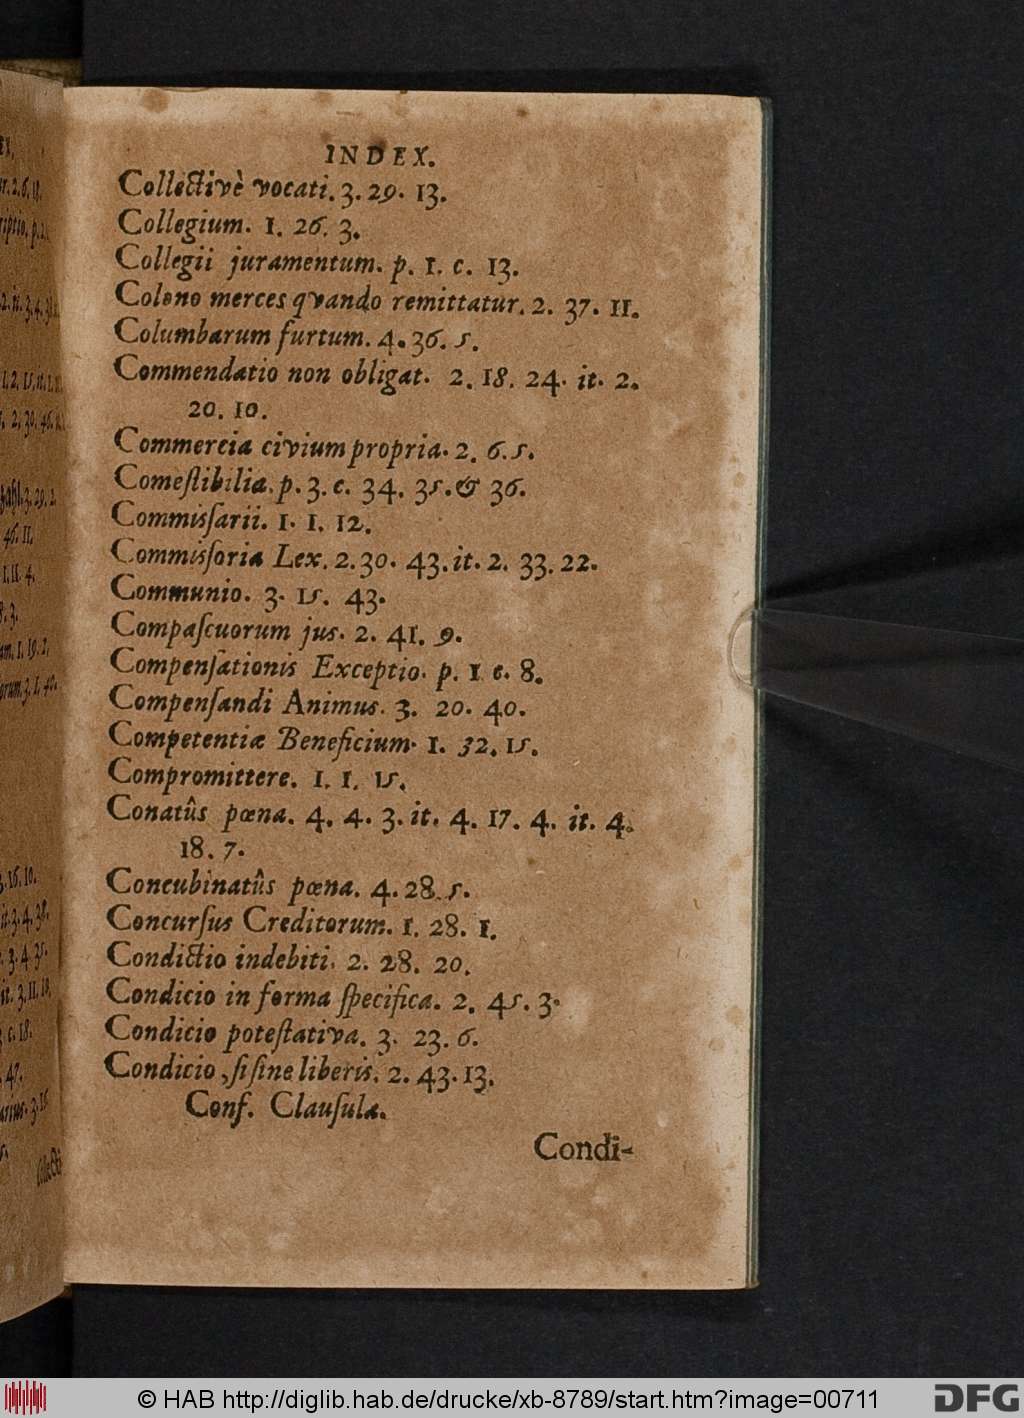 INDEX.
Collectivè vocati. 3. 29. 13.
Collegium. 1. 26. 3.
Collegii juramentum. p. 1. c. 13.
Colono merces qvando remittatur. 2. 37. 11.
Columbarum furtum. 4. 36. 5.
Commendatio non obligat. 2. 18. 24. it. 2.
20. 10.
Commercia civium propria. 2. 6. 5.
Comeſtibilia. p. 3. c. 34. 35. & 36.
Commisſarii. 1. 1. 12.
Commisſoria Lex. 2. 30. 43. it. 2. 33. 22.
Communio. 3. 15. 43.
Compaſcuorum jus. 2. 41. 9.
Compenſationis Exceptio. p. 1 c. 8.
Compenſandi Animus. 3. 20. 40.
Competentiæ Beneficium. 1. 32. 15.
Compromittere. 1. 1. 15.
Conatûs pœna. 4. 4. 3. it. 4. 17. 4. it. 4.
18. 7.
Concubinatûs pœna. 4. 28. 5.
Concurſus Creditorum. 1. 28. 1.
Condictio indebiti. 2. 28. 20.
Condicio in forma ſpecifica. 2. 45. 3.
Condicio poteſtativa. 3. 23. 6.
Condicio, ſi ſine liberis. 2. 43. 13.
Conf. Clauſula.
Condi-
© HAB http://diglib.hab.de/drucke/xb-8789/start.htm?image=00711
DFG